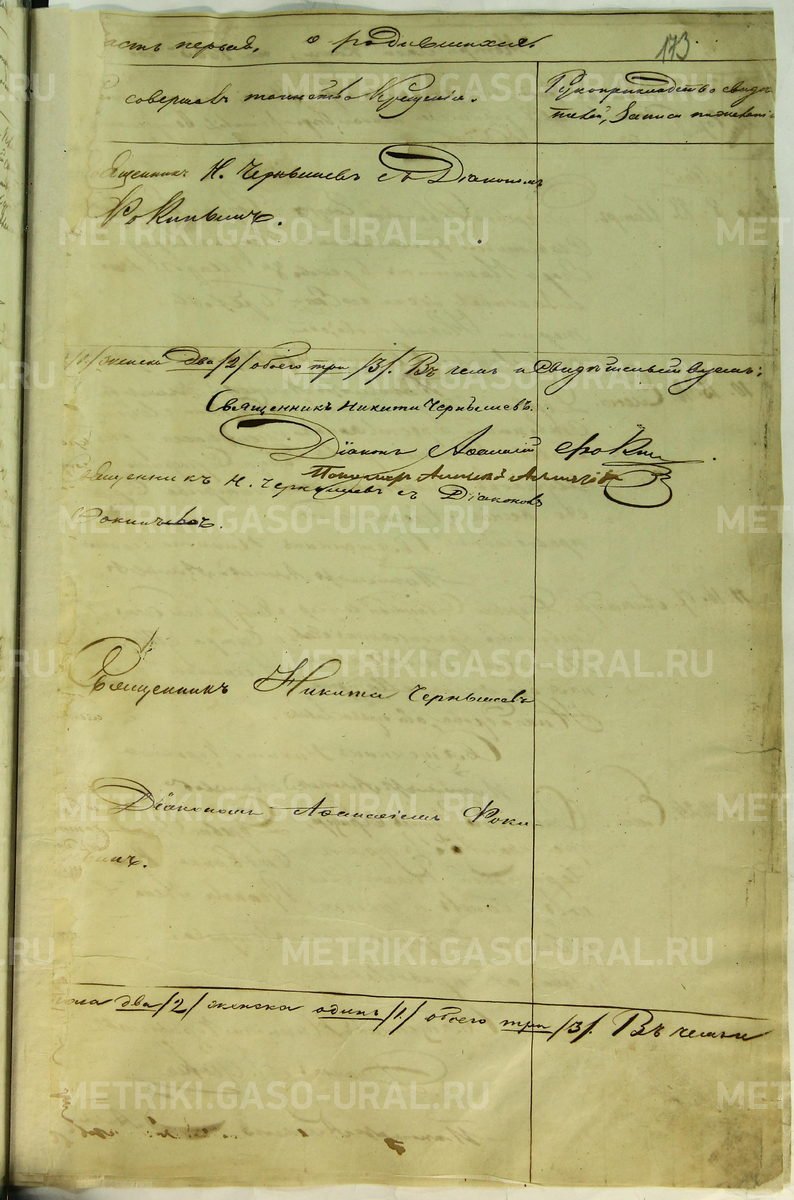 асть первая, о родившихся. 173
совершалъ таинство Крещенія.
Рукоприкладство свидѣ
телей, записи пожелані
ященникъ Н. Чернышевъ съ Діакономъ
Фокинымъ.
/1/ женска два /2/ обоего три /3/. Въ чемъ и свидѣтельствуемъ:
Священникъ Никита Чернышевъ.
Діаконъ Афанасій Фокин
Пономарь
вященникъ Н. Чернышевъ съ Діакономъ
Фокинымъ.
Священникъ Никита Чернышевъ
Діакономъ Афанасіемъ Фоки-
нымъ.
пола два /2/ женска одинъ /1/ обоего три /3/. Въ чемъ и
METRIKI.GASO-URAL.RU